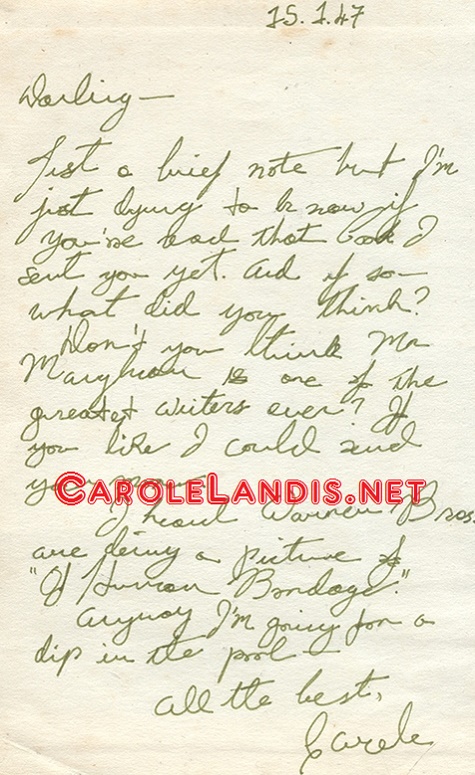 15.1.47
Darling —
Just a brief note but I'm
just dying to know if
you've read that book I
sent you yet. And if so
what did you think?
Don't you think Mr
Maugham is one of the
greatest writers ever? If
you like I could send
you
CAROLELANDIS.NET
I heard Warner Bros.
are doing a picture of
"Of Human Bondage."
Anyway I'm going for a
dip in the pool —
All the best,
Carole